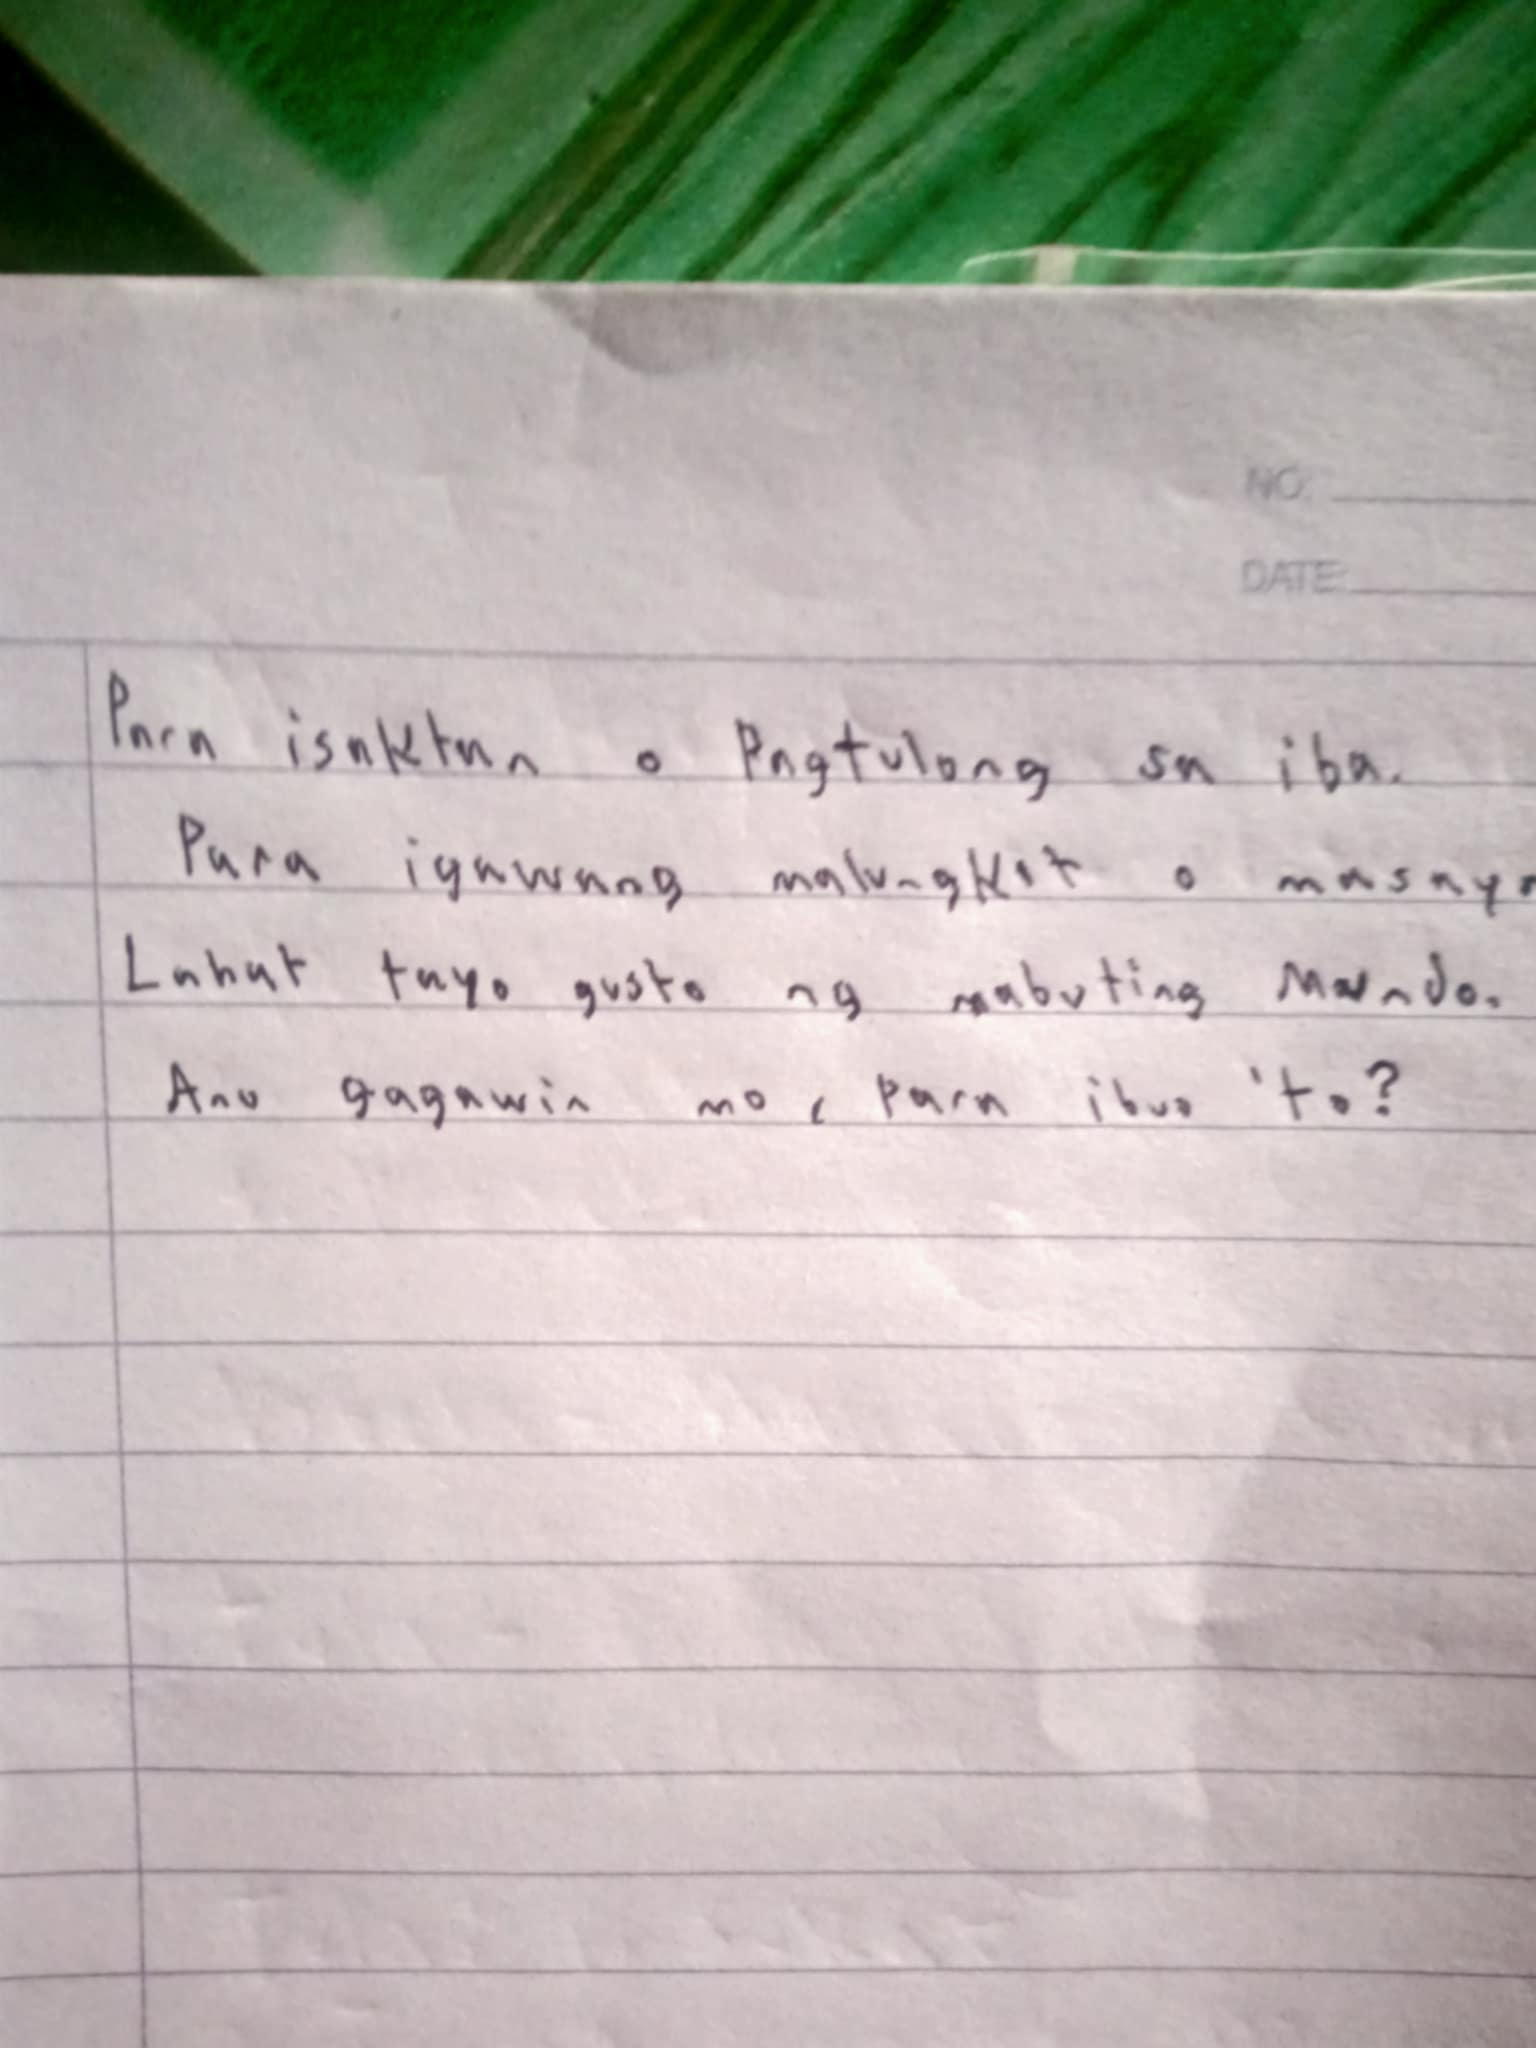 NO:
DATE:
Para isaktan o Pagtulong sa iba.
Para igawang malungkot o masaya
Lahat tayo gusto ng mabuting Mundo.
Ano gagawin mo, para ibuo 'to?